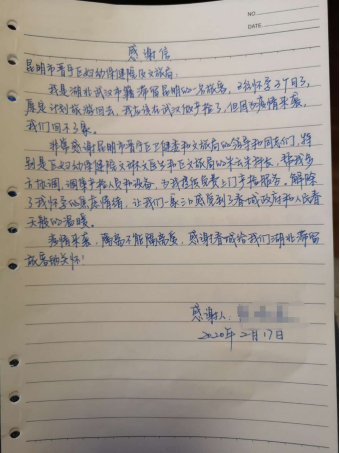 NO.
DATE.
感谢信
昆明市晋宁区妇幼保健院区文旅局:
我是湖北武汉市籍滞留昆明的一名旅客,已经怀孕3个月了,
原定计划旅游回去,我应该在武汉做产检了,但因为疫情来袭,
我们回不了家。
非常感谢昆明市晋宁区卫健委和文旅局的领导和同志们,特
别是区妇幼保健院 医生和区文旅局的 科长,帮我多
方协调,调集产检人员和设备,为我提供免费上门产检服务。解除
了我怀孕的焦虑情绪,让我们一家三口感受到了春城政府和人民春
天般的温暖。
疫情来袭,隔离不能隔亲爱,感谢春城给我们湖北滞留
旅客的关怀!
感谢人:
2020年2月17日